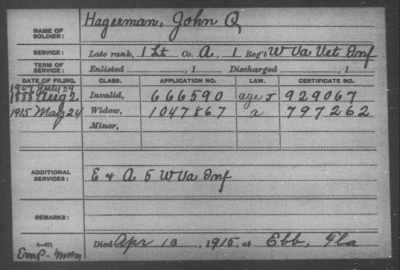 NAME OF SOLDIER: Hagerman, John Q
SERVICE: Late rank, 1 Lt Co. A, 1 Reg't W Va Vet Inf
TERM OF SERVICE: Enlisted , 1 Discharged , 1
DATE OF FILING. CLASS. APPLICATION NO. LAW. CERTIFICATE NO.
1907 July 29
1888 Aug 2 Invalid, 666590 age J 929067
1915 May 24 Widow, 1047867 a 797262
Minor,
ADDITIONAL SERVICES: E & A 5 W Va Inf
REMARKS:
Died Apr 18, 1915, at Ebb, Fla